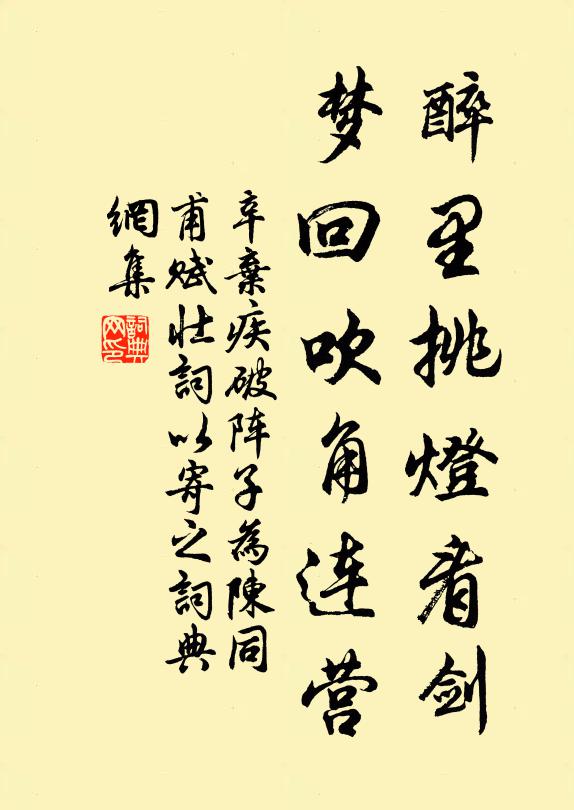 醉里挑燈看剑
梦回吹角连营
辛棄疾破阵子為陳同
甫赋壮詞以寄之詞典
網集
詞典
网印